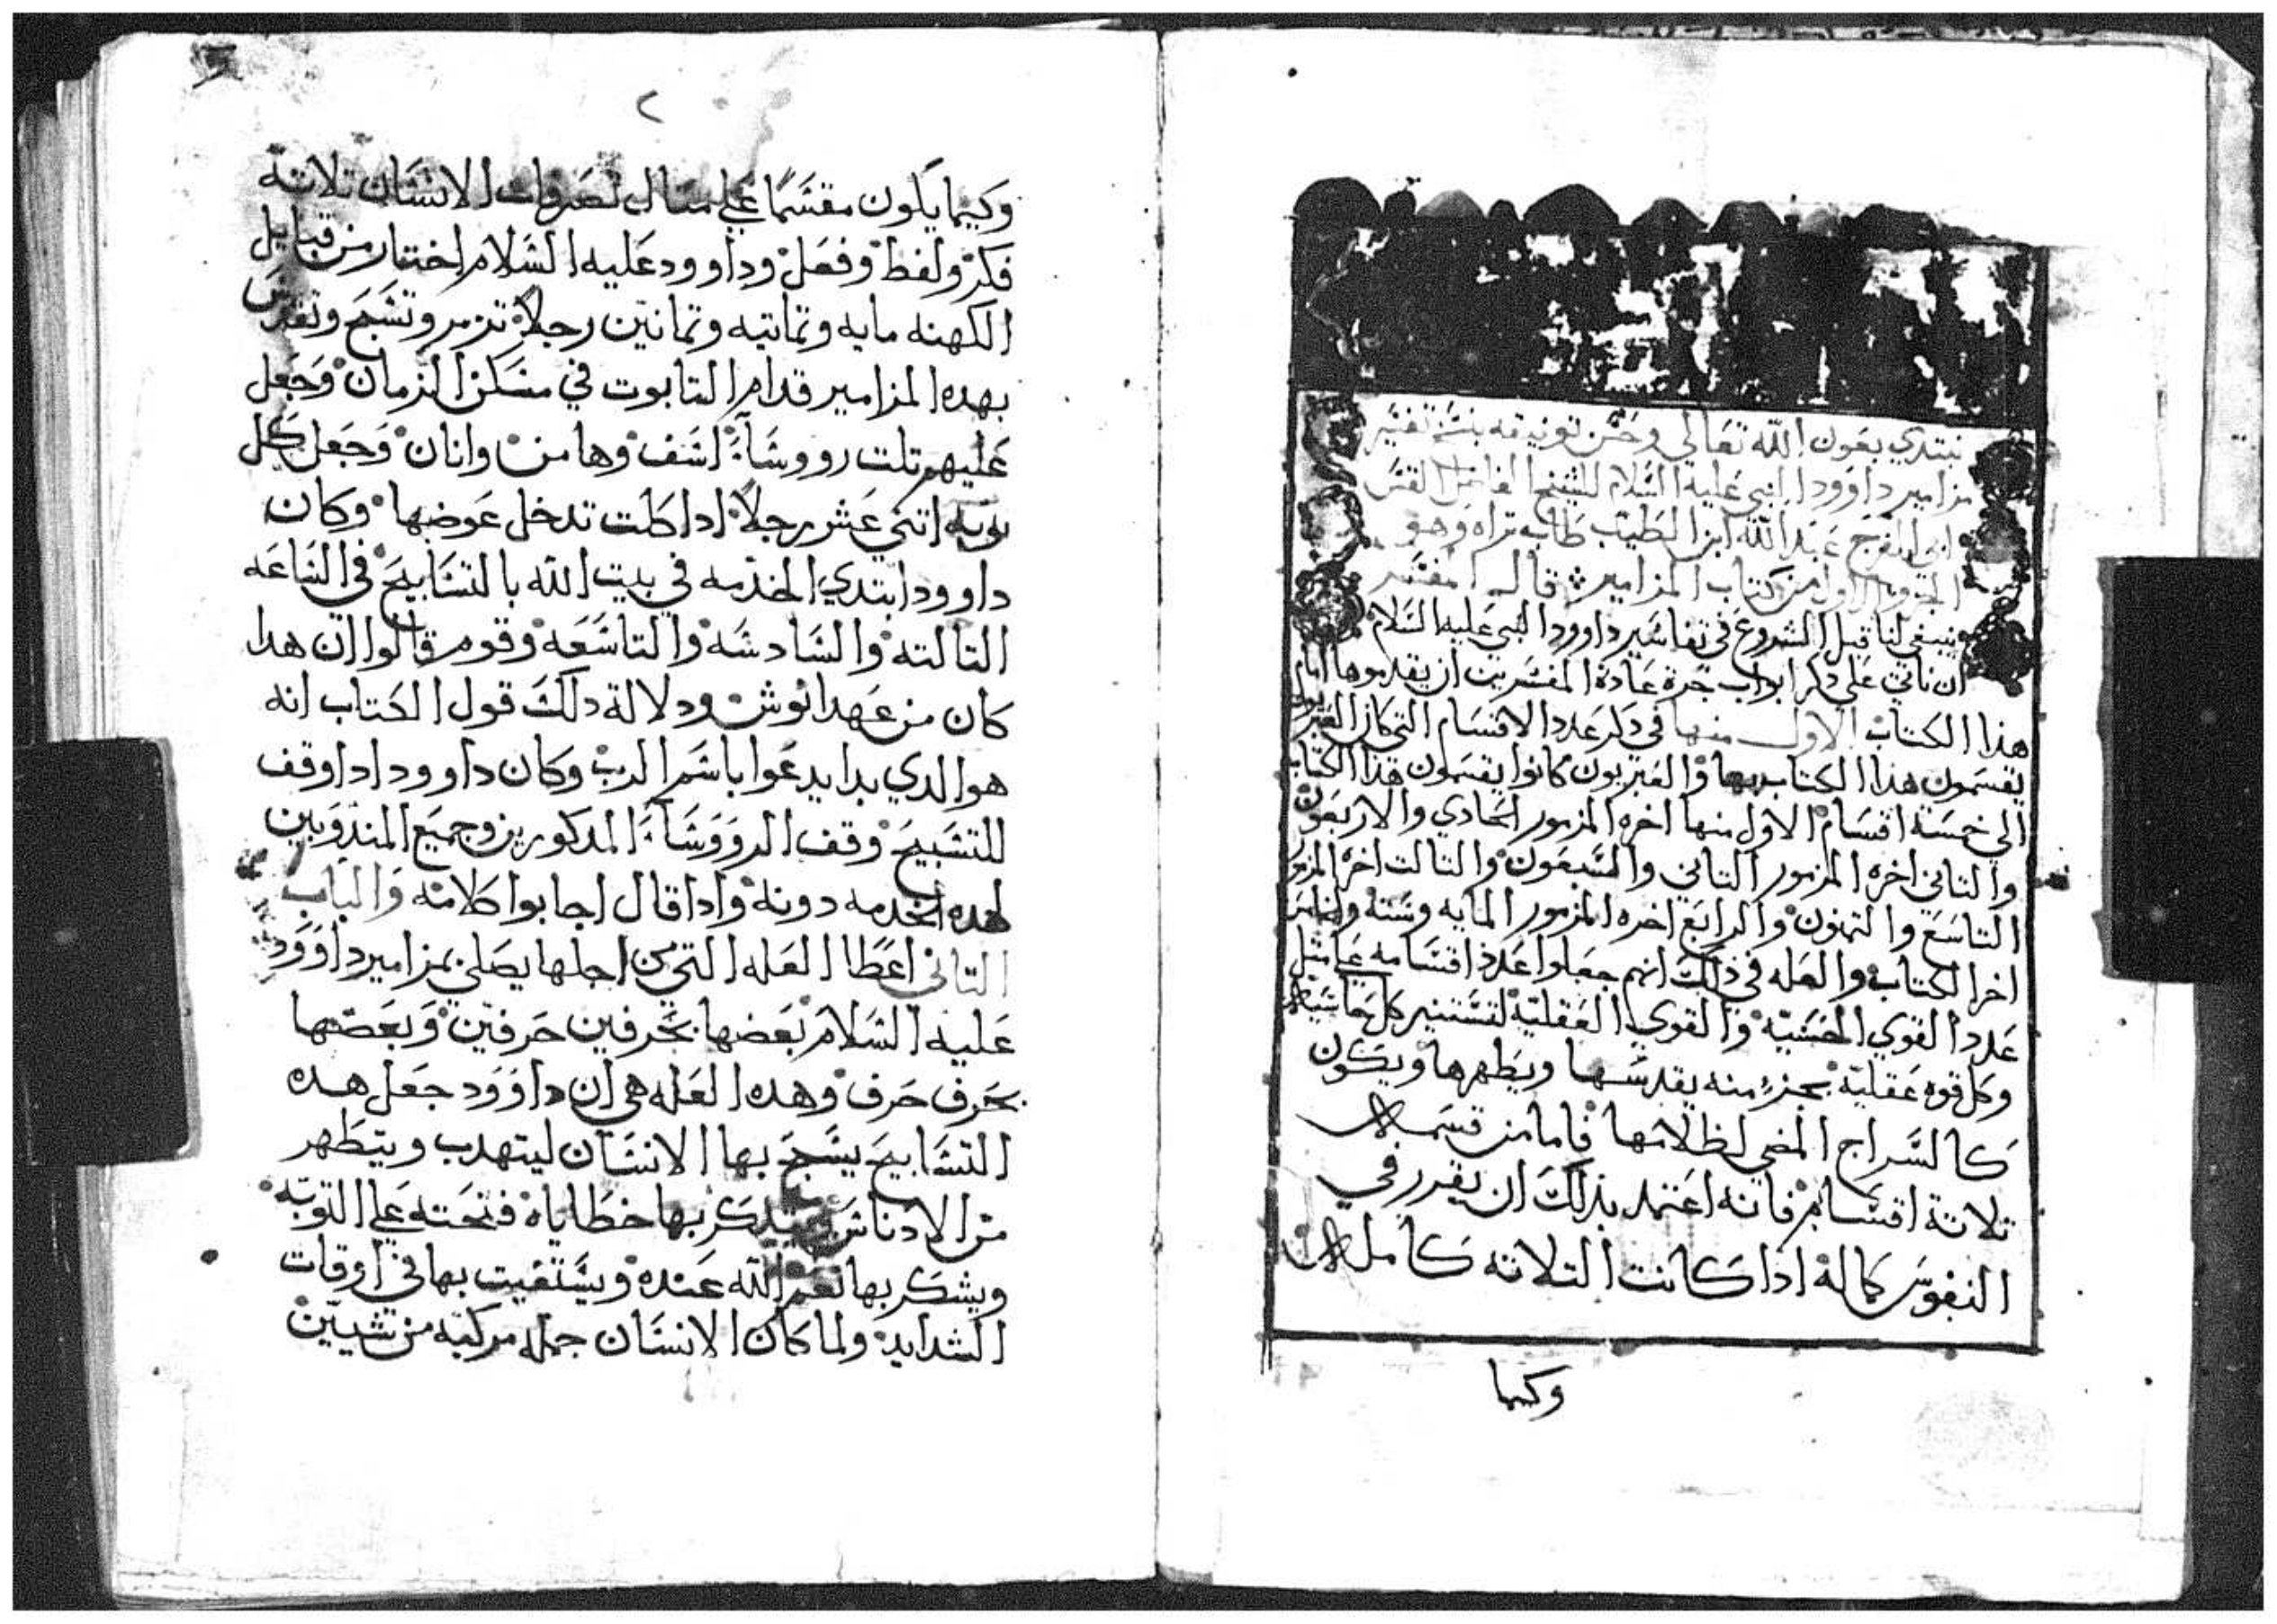 نبتدي بعون الله تعالي وحسن توفيقه بنسخ تفسير
مزامير داوود النبي عليه السلام للشيخ الفاضل القس
ابي الفرج عبد الله ابن الطيب طاب تراه وهو
الجزو الاول من كتاب المزامير قال المفسر
ينبغي لنا قبل الشروع في تفاسير داوود النبي عليه السلام
ان ناتي علي ذكر ابواب جرة عادة المفسرين ان يقدموها امام
هذا الكتاب الاول منها في ذكر عدد الاقسام التي كان العبريون
يقسمون هذا الكتاب بها والعبريون كانوا يقسمون هذا الكتاب
الي خمسة اقسام الاول منها اخره المزمور الحادي والاربعون
والتاني اخره المزمور التاني والسبعون والتالت اخره المزمور
التاسع والتمنون والرابع اخره المزمور المايه وستة والخامس
اخر الكتاب والعله في ذلك انهم جعلوا عدد اقسامه علي مثل
عدد القوي الحسيه والقوي العقلية لتستنير كل حاسية
وكل قوه عقلية بجزء منه يقدسها ويطهرها ويكون
كالسراج المضي لظلامها فاما من قسمه الى
تلاتة اقسام فانه اعتمد بذلك ان يقرر في
النفوس كماله اذا كانت التلاته كامله
وكيما
٢
وكيما يكون مقسما علي متال تصرفات الانسان تلاتة
فكر ولفظ وفعل وداوود عليه السلام اختار من قبايل
الكهنه مايه وتمانيه وتمانين رجلا تزمر وتسبح وتقدس
بهده المزامير قدام التابوت في مسكن الزمان وجعل
عليهم تلت رووساء اسف وهامن واتان وجعل كل
نوبه اتني عشر رجلا ادا كلت تدخل عوضها وكان
داوود ابتدي الخدمه في بيت الله بالتسابيح في الساعه
التالته والسادسه والتاسعه وقوم قالوا ان هدا
كان من عهد انوش ودلالة دلك قول الكتاب انه
هو الدي بدا يدعوا باسم الرب وكان داوود ادا وقف
للتسبيح وقف الرووساء المدكورين وجميع المندوبين
لهده الخدمه دونه وادا قال اجابوا كلامه والباب
التاني اعطا العله التي من اجلها يصلي بمزامير داوود
عليه السلام بعضها بحرفين حرفين وبعضها
بحرف حرف وهده العله هي ان داوود جعل هده
التسابيح يسبح بها الانسان ليتهدب ويتطهر
من الادناس يتدكر بها خطاياه فتحته علي التوبه
ويشكر بها نعم الله عنده ويستغيت بها في اوقات
الشدايد ولما كان الانسان جمله مركبه من شيين